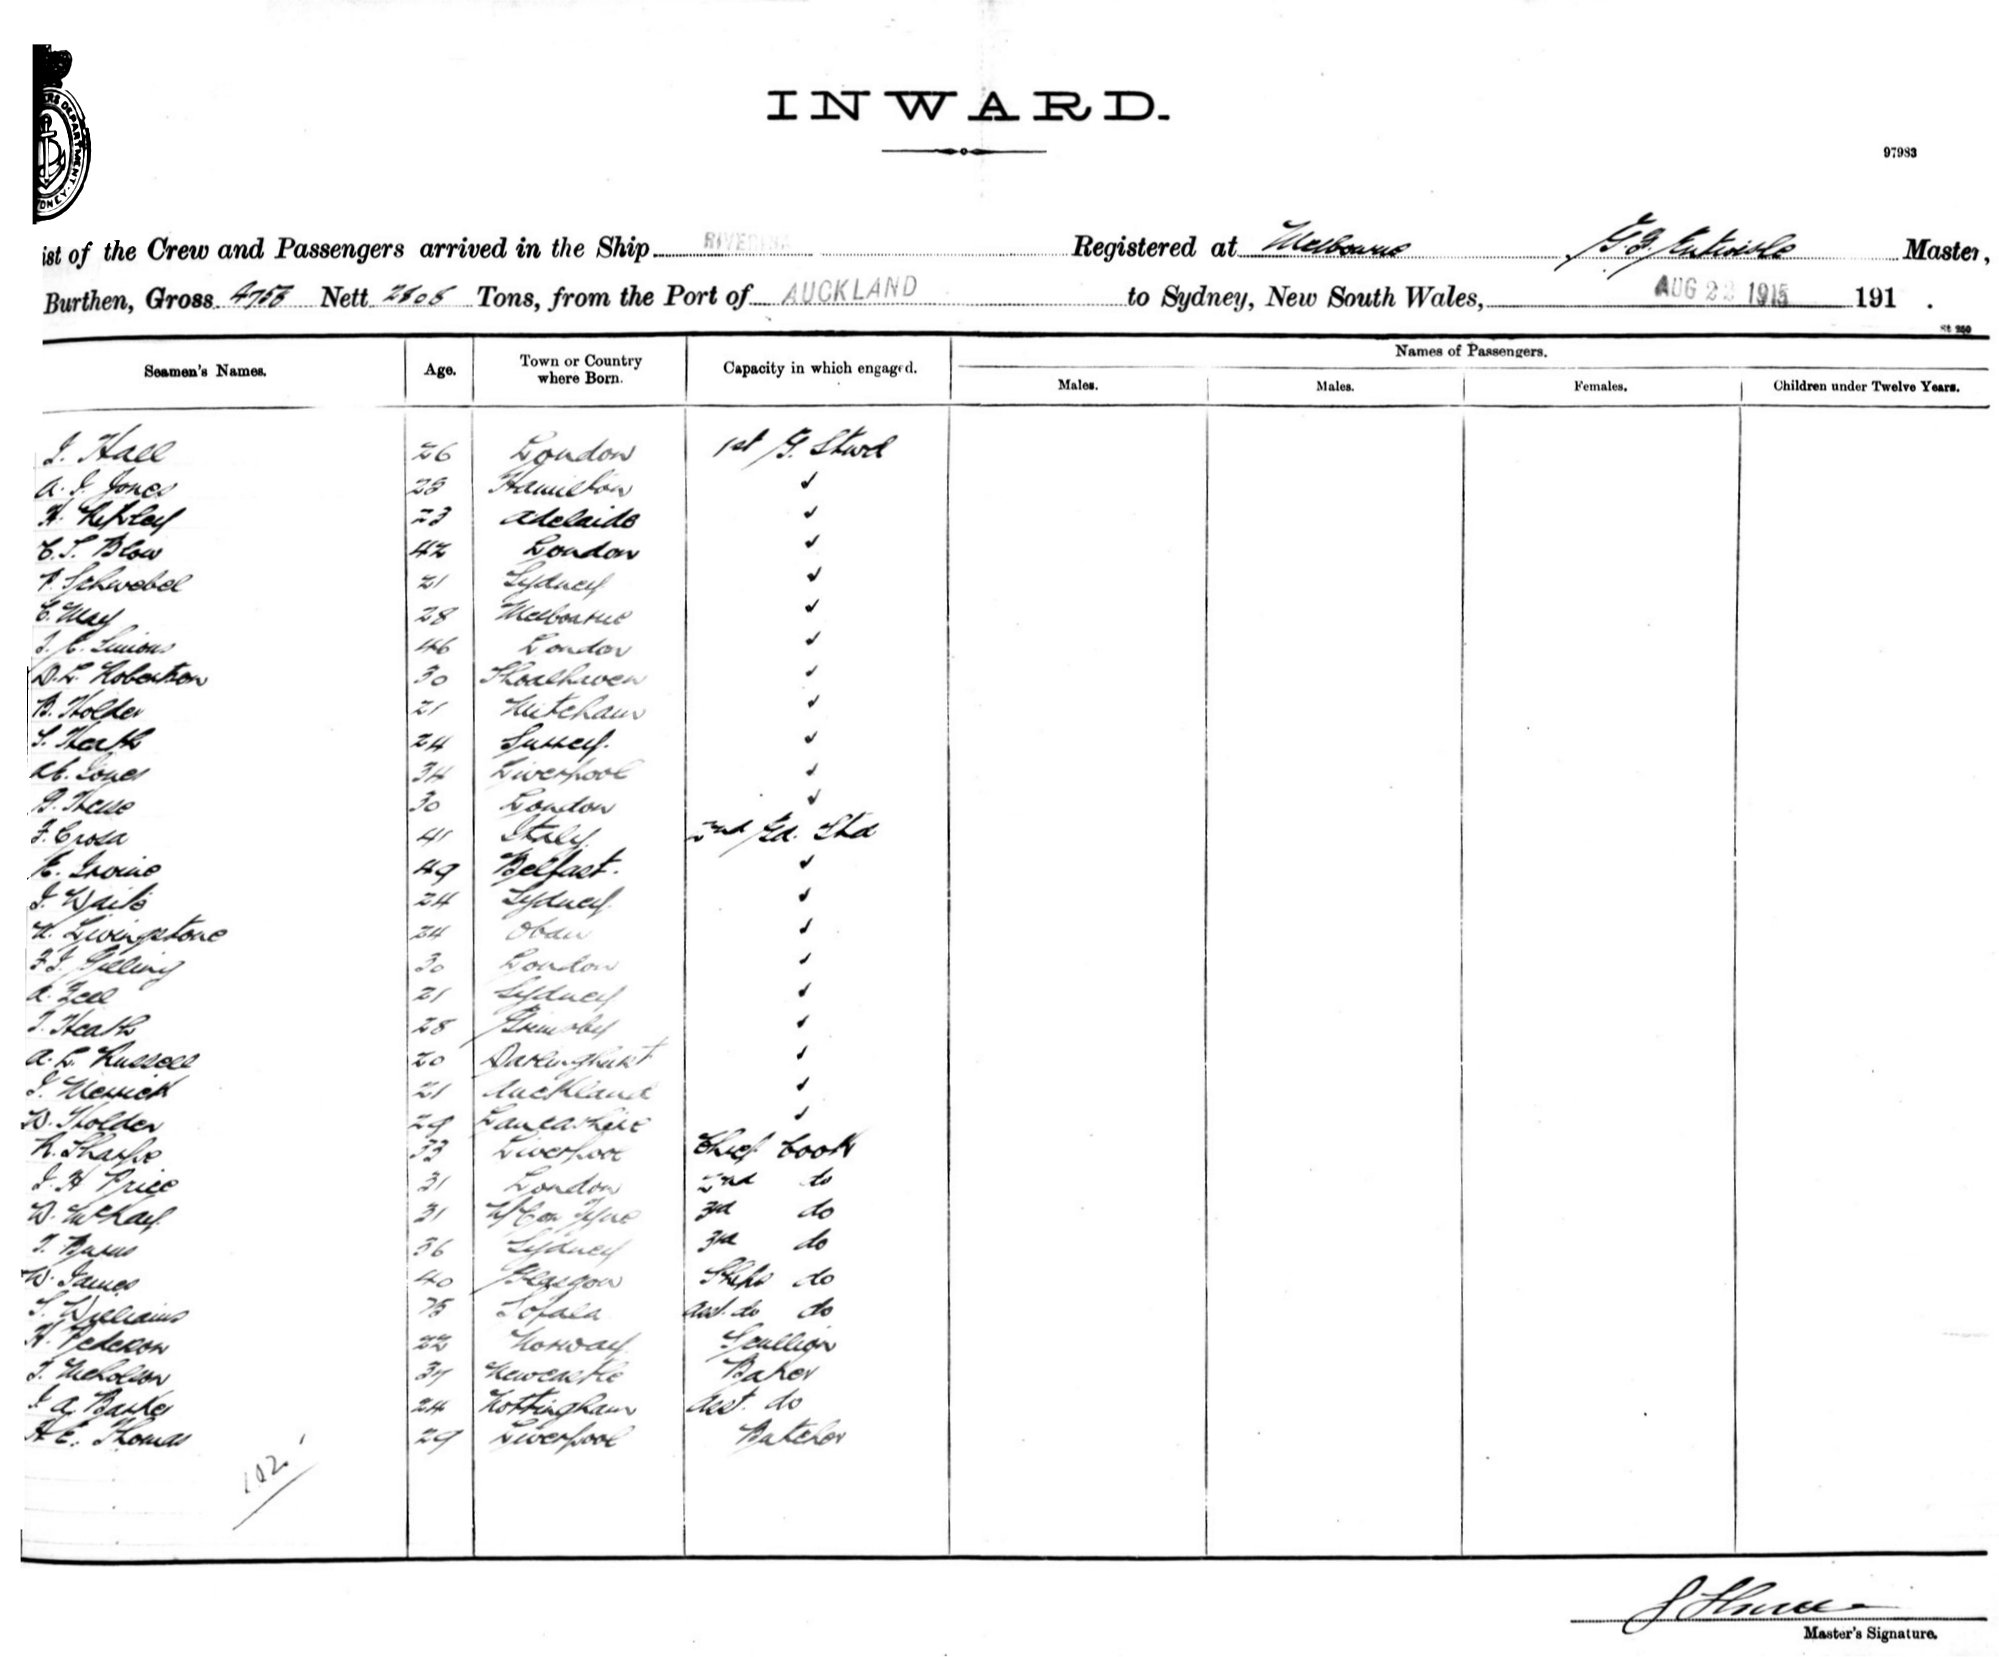 INWARD.
97983
RS DEPARTMENT. SYDNEY
ist of the Crew and Passengers arrived in the Ship RIVERINA Registered at Melbourne Master,
Burthen, Gross 4758 Nett Tons, from the Port of AUCKLAND to Sydney, New South Wales, AUG 23 1915 191 .
St 250
Seamen's Names. Age. Town or Country where Born. Capacity in which engaged. Names of Passengers.
Males. Males. Females. Children under Twelve Years.
J. Hall 26 London 1st G. Stwd
A. J. Jones 28 Hamilton ✓
H. 23 Adelaide ✓
C. S. Blow 42 London ✓
F. Schwebel 21 Sydney ✓
C. May 28 Melbourne ✓
J. C. Simons 46 London ✓
D. L. Robertson 30 Shoalhaven ✓
B. Holder 21 Mitcham ✓
S. Heath 24 Surrey. ✓
A C. Jones 34 Liverpool ✓
G. 30 London ✓
F. Crosa 41 Italy. 2nd Gd. Std
E. Irvine 49 Belfast. ✓
J. Waite 24 Sydney. ✓
N. Livingstone 34 Oban ✓
F J. Gilling 30 London ✓
A. Zell 21 Sydney ✓
J. Heath 28 Grimsby ✓
A. L. Russell 20 Darlinghurst ✓
J. Merrick 21 Auckland ✓
W. Holder 29 Lancashire ✓
R. Sharpe 33 Liverpool Chief Cook
J. H Price 31 London 2nd do
W. McKay 31 N/C on Tyne 3rd do
J. Burns 36 Sydney 3rd do
W. James 40 Glasgow Ships do
S. Williams Sofala Asst. do do
H. Pederson 22 Norway. Scullion
J. Nicholson 37 Newcastle Baker
J A. Barker 24 Nottingham Asst. do
H E. Thomas 29 Liverpool Butcher
102
Master's Signature.